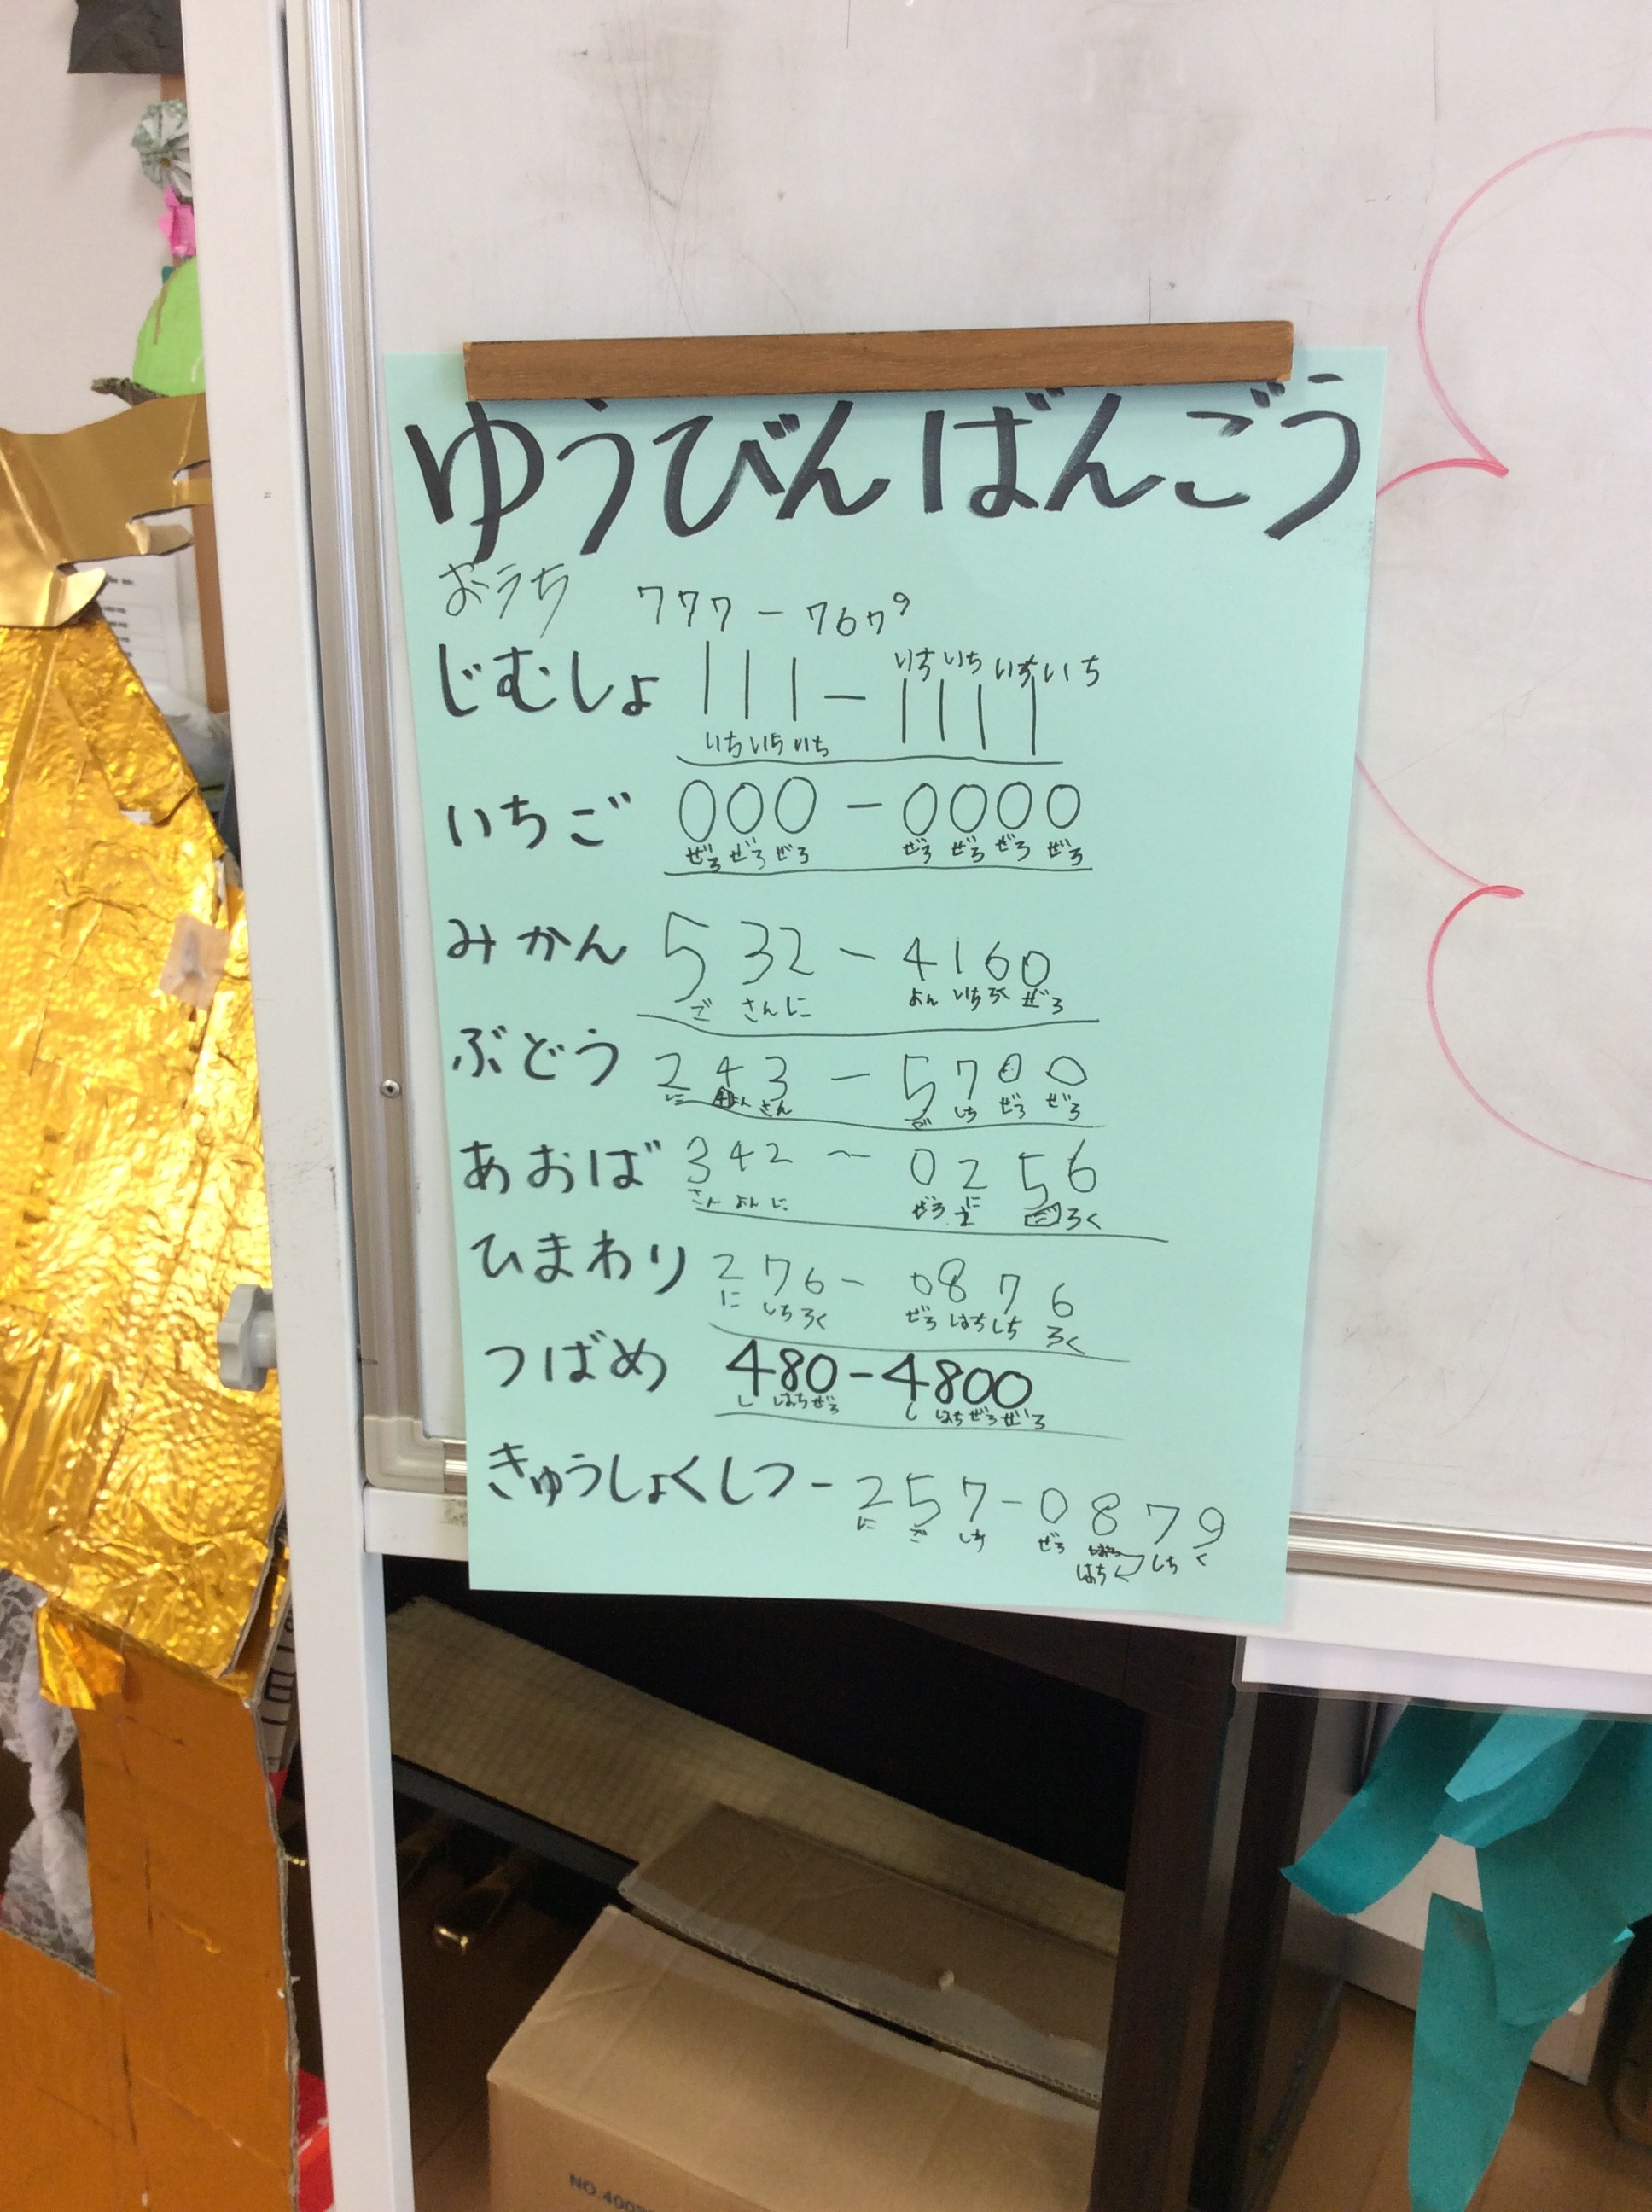 ゆうびんばんごう
おうち 777-7679
じむしょ 111-1111
いち いち いち いち
いち いち いち
いちご 000-0000
ぜろ ぜろ ぜろ ぜろ ぜろ ぜろ ぜろ
みかん 532-4160
ご さん に よん いち ろく ぜろ
ぶどう 243-5700
に よん さん ご しち ぜろ ぜろ
あおば 342-0256
さん よん に ぜろ に ろく
ひまわり 276-0876
に しち ろく ぜろ はち しち ろく
つばめ 480-4800
し はち ぜろ し はち ぜろ ぜろ
きゅうしょくしつ-257-0879
に ご しち ぜろ はち しち く